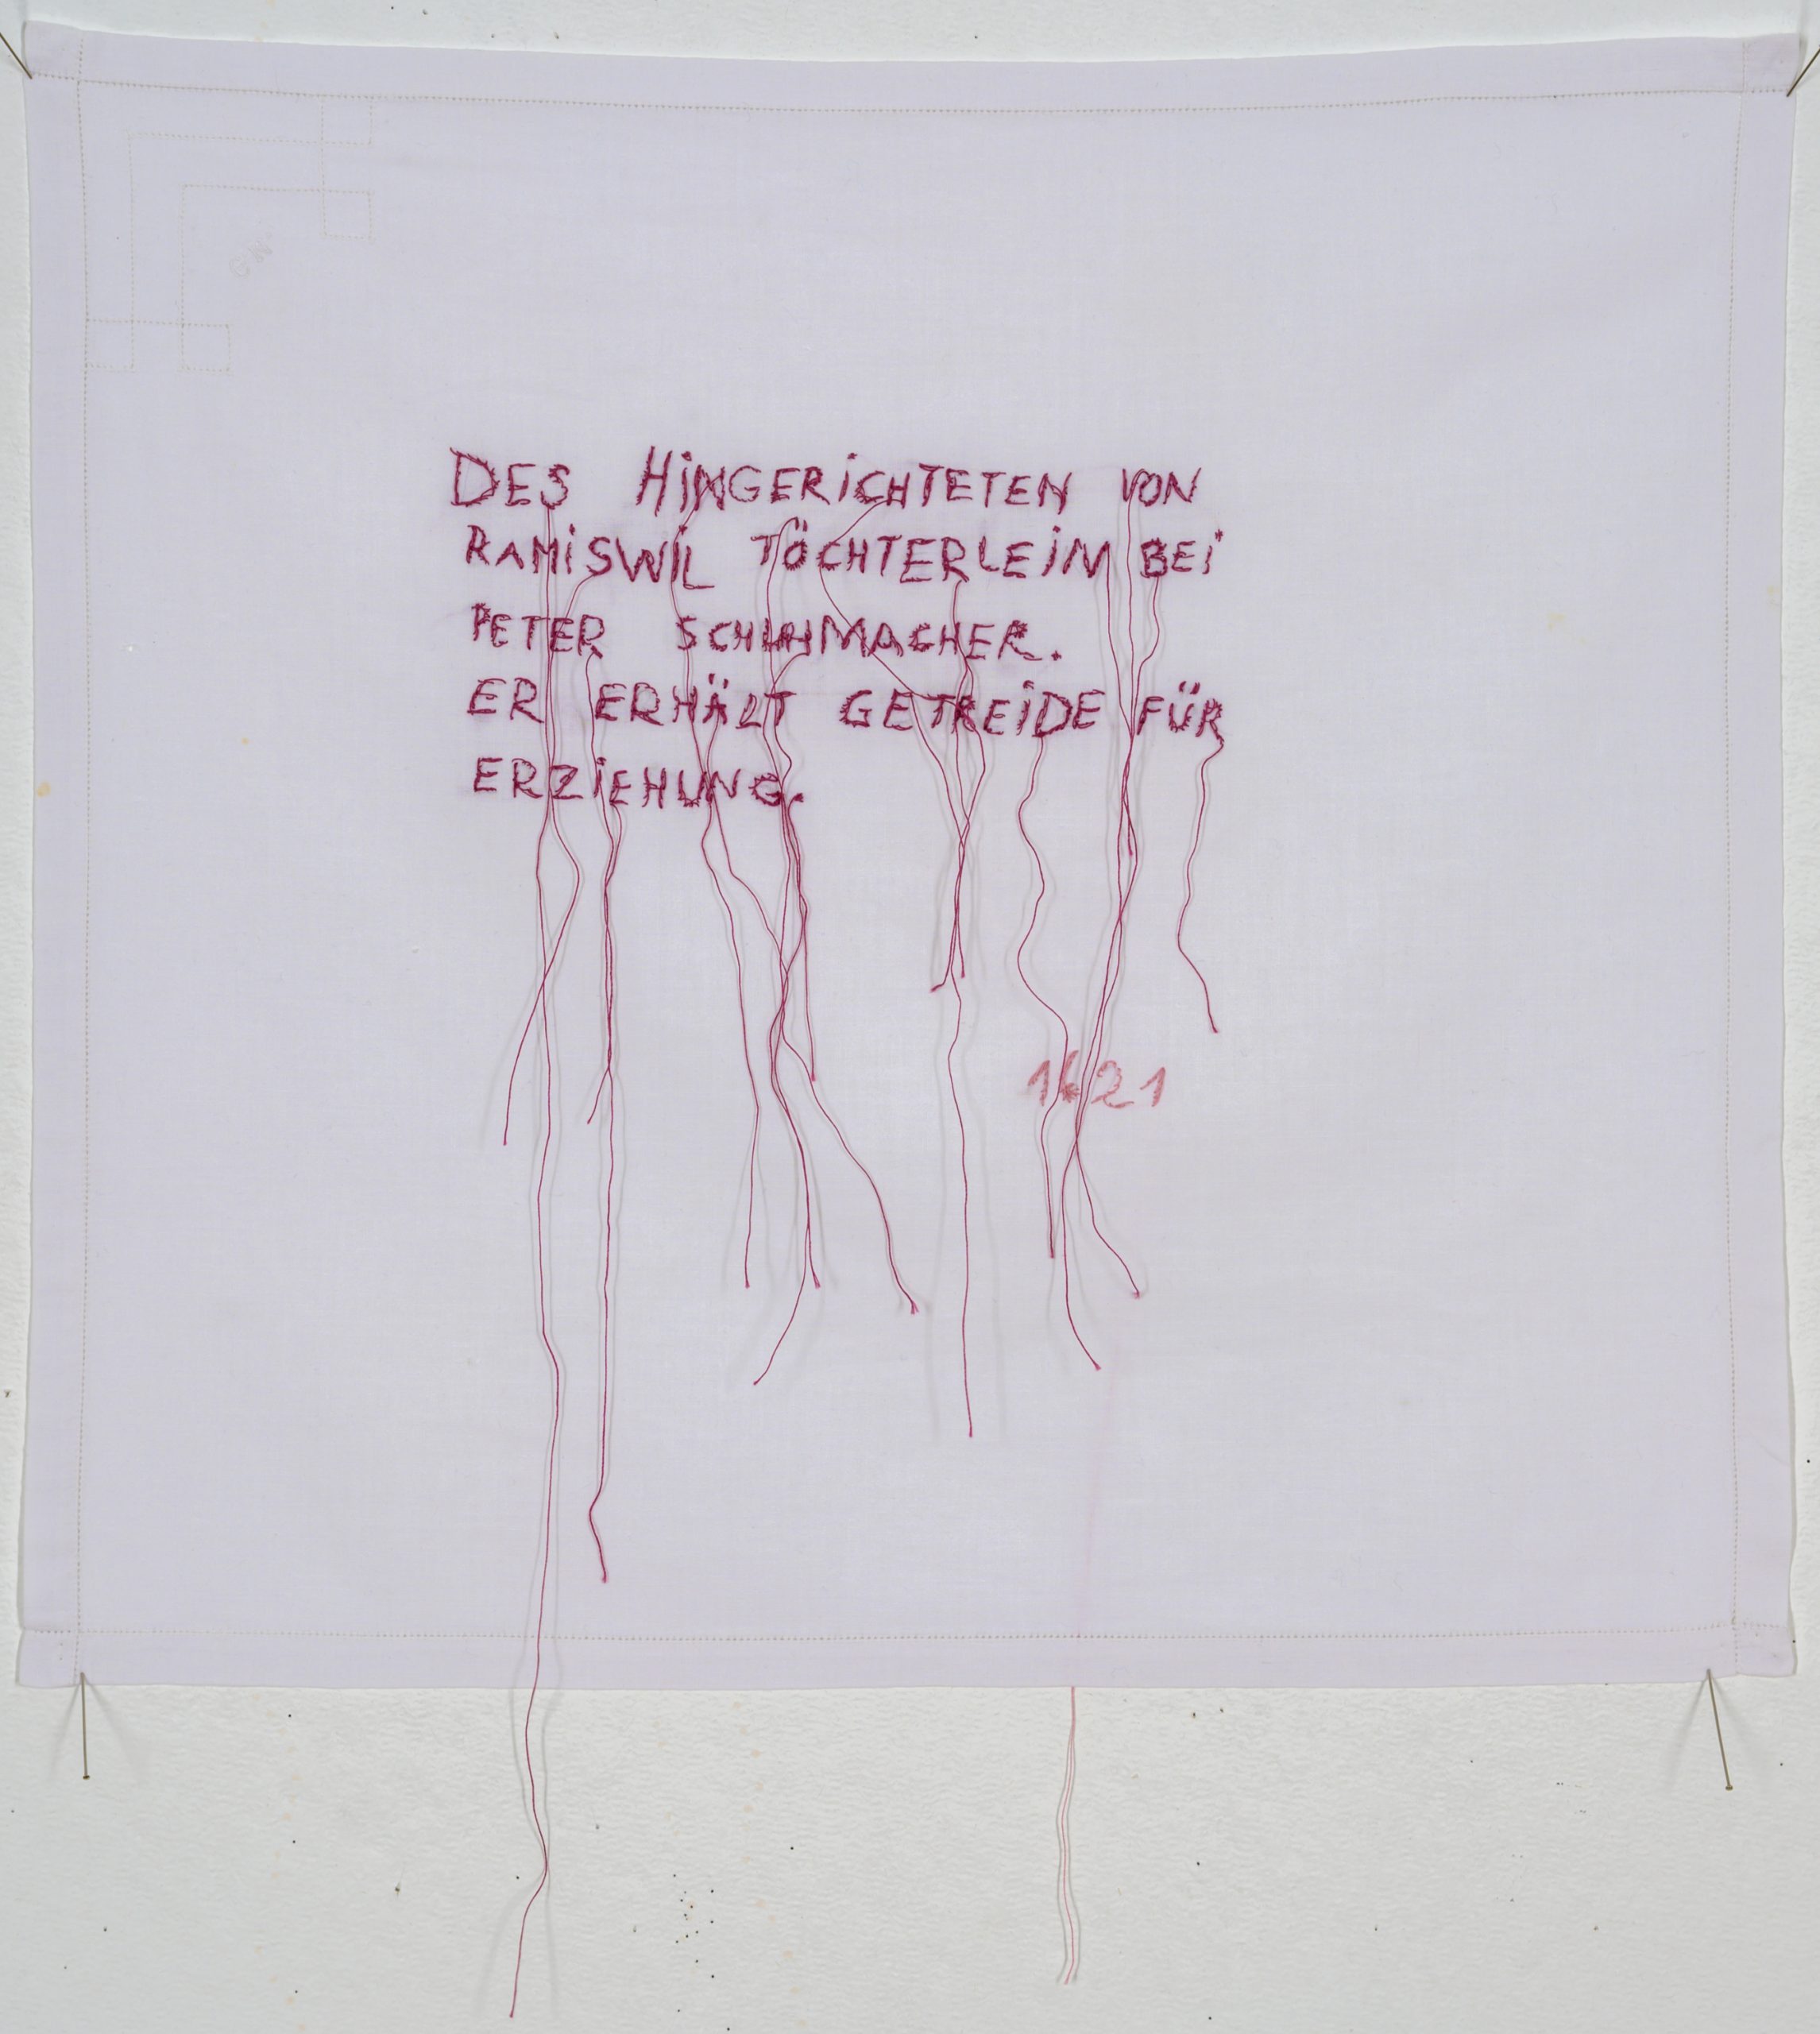 GW
DES HiNGERiCHTETEN VON
RAMiSWiL TÖCHTERLEiN BEi
PETER SCHUHMACHER.
ER ERHÄLT GETREiDE FÜR
ERZiEHUNG.
1621